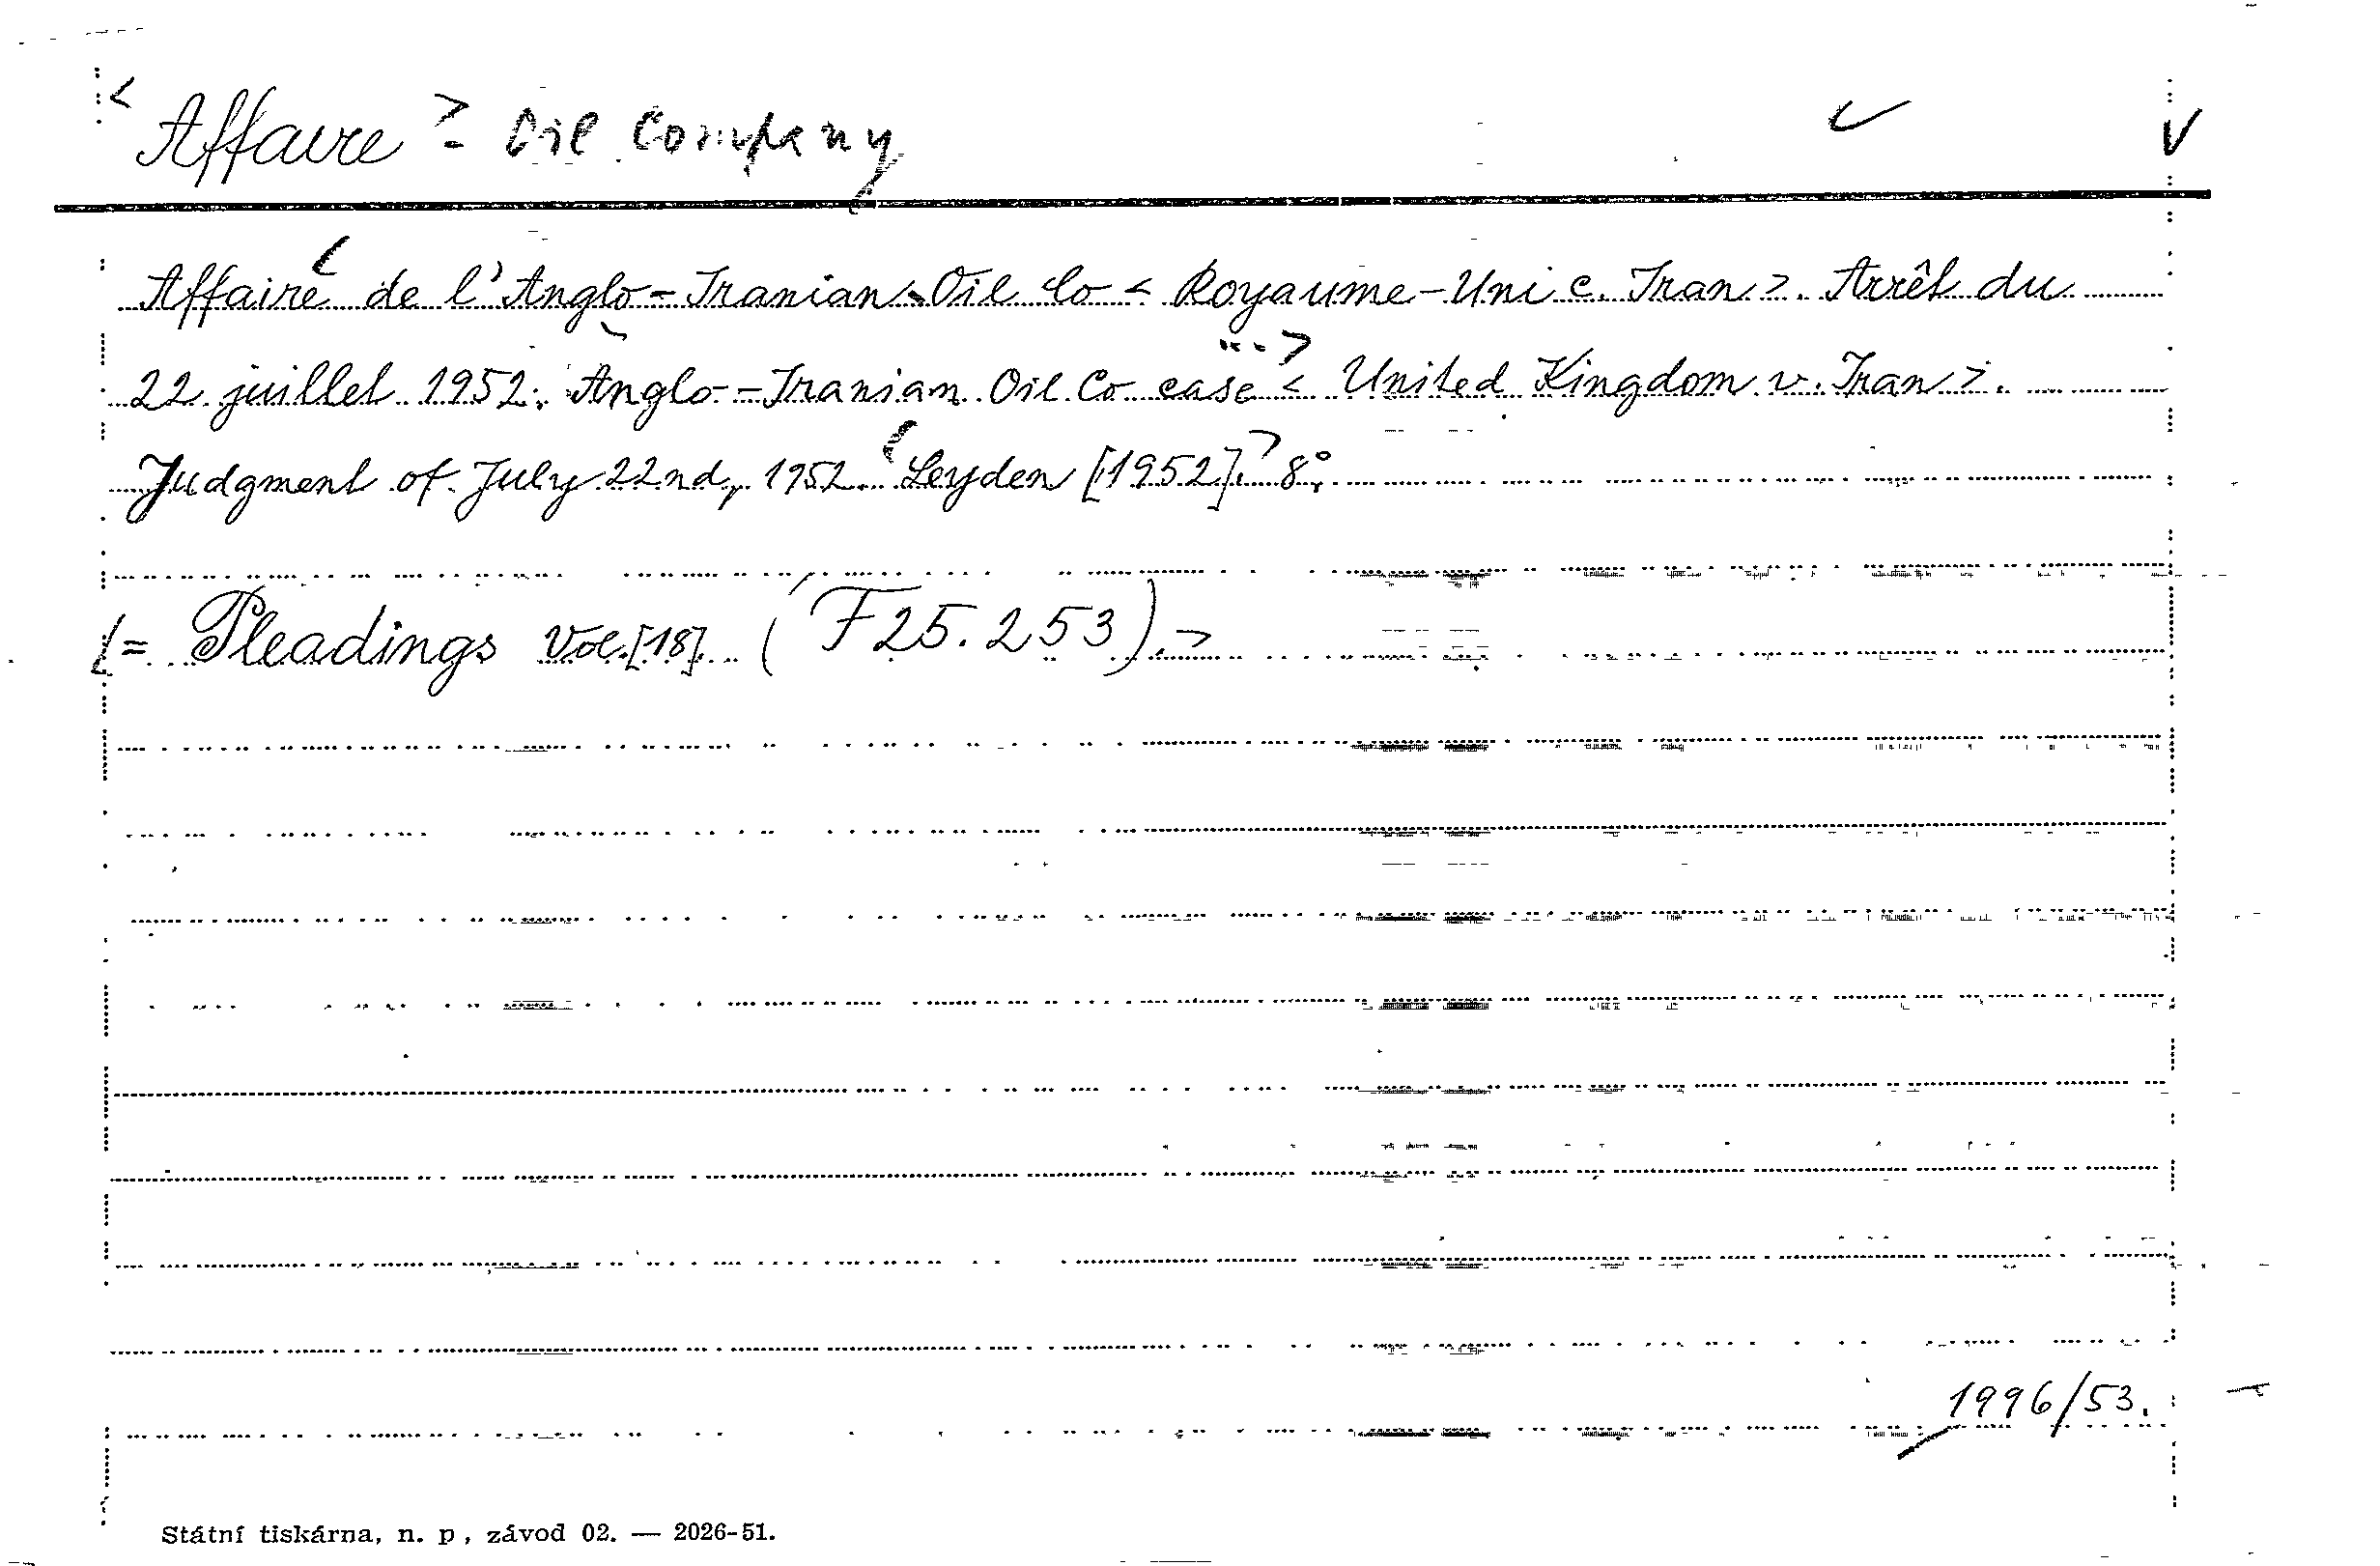 < Affaire > - Oil Company
Affaire de l'Anglo-Iranian Oil Co < Royaume-Uni c. Iran >. Arrêt du
22 juillet 1952. Anglo-Iranian Oil Co case < United Kingdom v. Iran >.
Judgment of July 22nd, 1952. Leyden [1952]. 8°.
= Pleadings Vol. [18]. (F 25.253).>
1996/53.
Státní tiskárna, n. p., závod 02. — 2026-51.